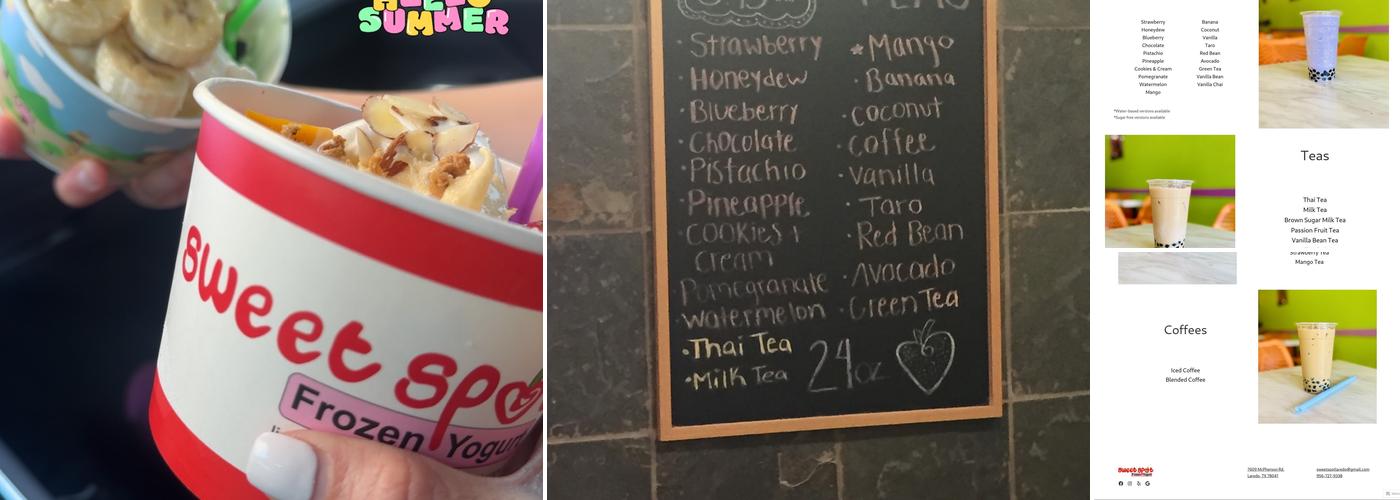 HELLO
SUMMER
sweet spot
Frozen Yogurt
Strawberry
Honeydew
Blueberry
Chocolate
Pistachio
Pineapple
Cookies &
Cream
Pomegranate
Watermelon
Thai Tea
Milk Tea
Mango
Banana
Coconut
Coffee
Vanilla
Taro
Red Bean
Avocado
Green Tea
24oz
Strawberry
Honeydew
Blueberry
Chocolate
Pistachio
Pineapple
Cookies & Cream
Pomegranate
Watermelon
Mango
Banana
Coconut
Vanilla
Taro
Red Bean
Avocado
Green Tea
Vanilla Bean
Vanilla Chai
*Water-based versions available
*Sugar free versions available
Teas
Thai Tea
Milk Tea
Brown Sugar Milk Tea
Passion Fruit Tea
Vanilla Bean Tea
Strawberry Tea
Mango Tea
Coffees
Iced Coffee
Blended Coffee
sweet spot
7609 McPherson Rd.
Laredo, TX 78041
sweetspotlaredo@gmail.com
956-727-9338